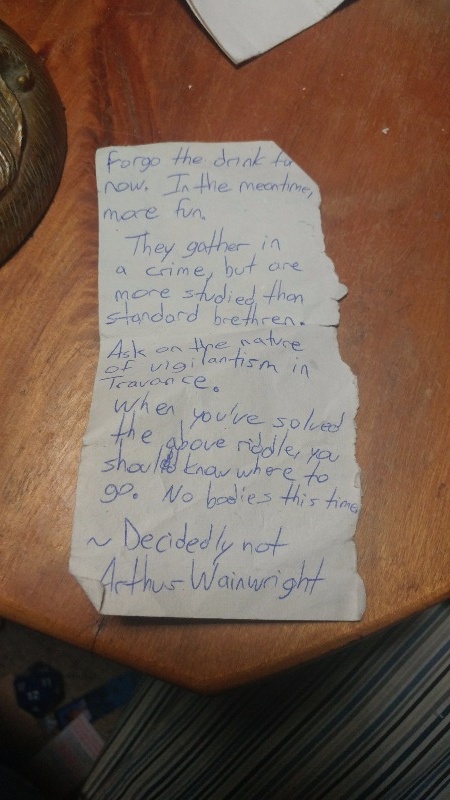 Forgo the drink
now. In the meantime,
more fun.
They gather in
a crime, but are
more studied than
standard brethren.
Ask on the nature
of vigilantism in
Travance.
When you've solved
the above riddle, you
should know where to
go. No bodies this time
~ Decidedly not
Arthur Wainwright
12